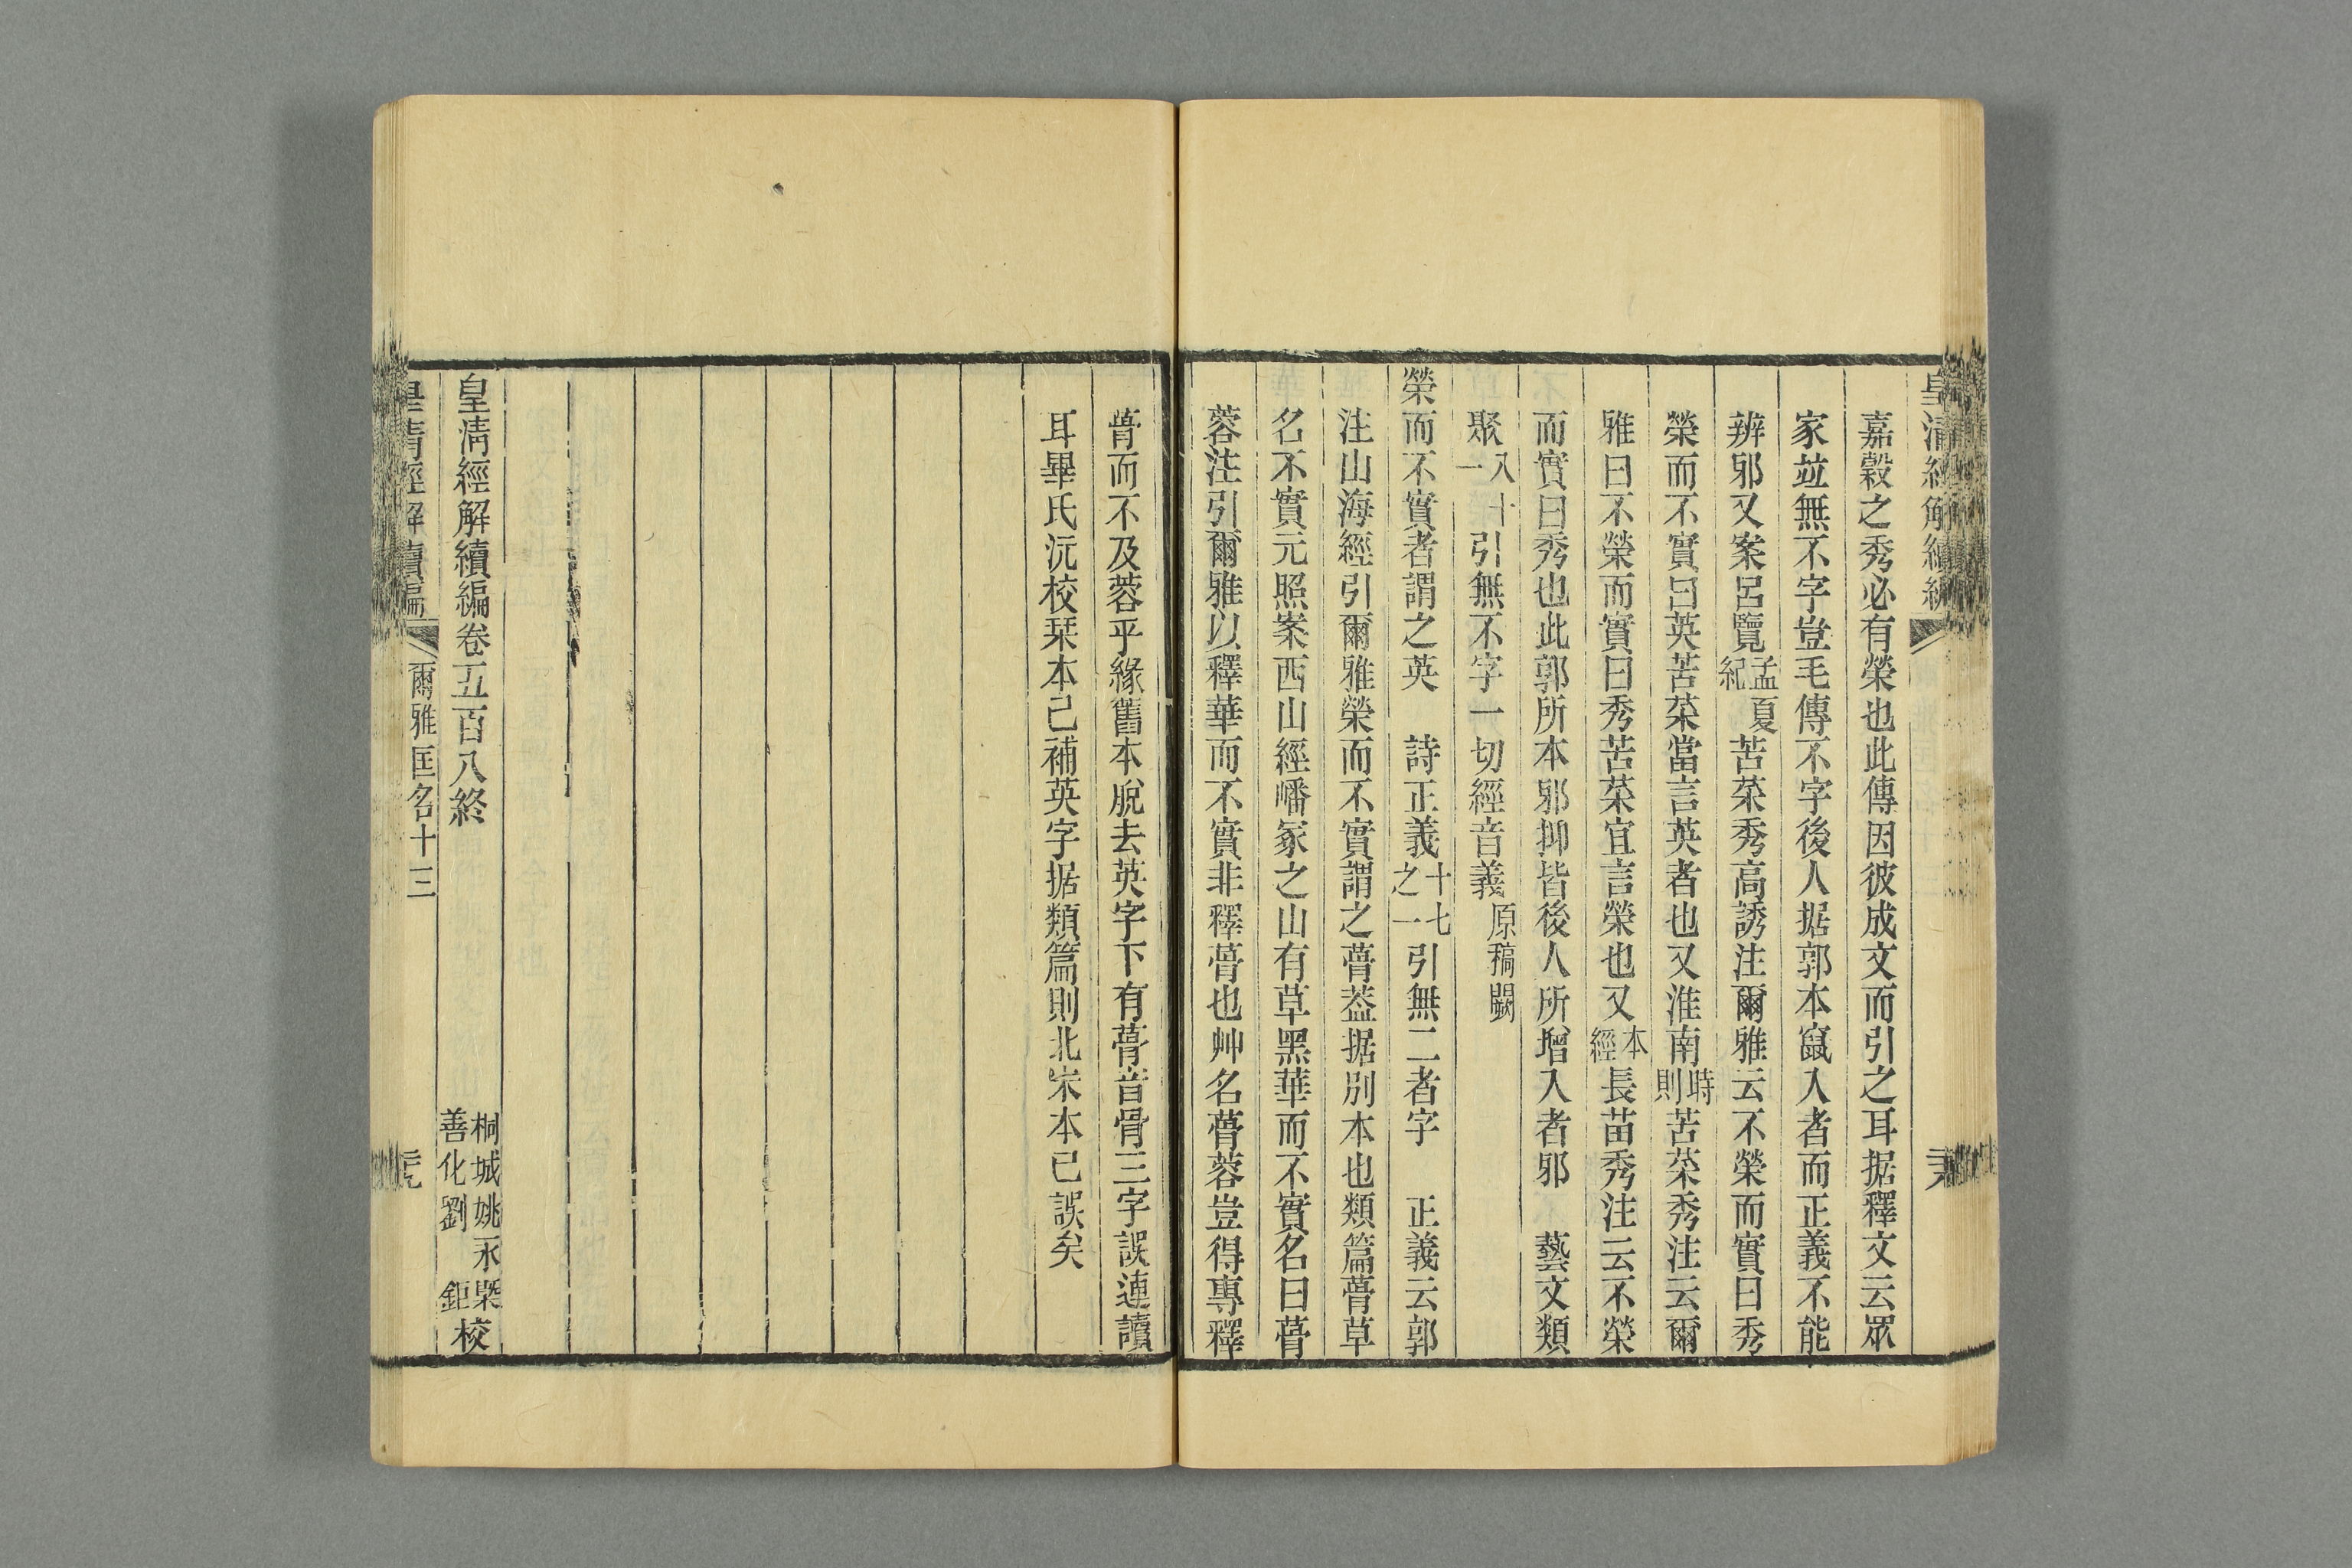 皇清經解續編
嘉穀之秀必有榮也此傳因彼成文而引之耳据釋文云眾
家竝無不字豈毛傳不字後人据郭本竄入者而正義不能
辨邪又案呂覽孟夏紀苦菜秀高誘注爾雅云不榮而實曰秀
榮而不實曰英苦菜當言英者也又淮南時則苦菜秀注云爾
雅曰不榮而實曰秀苦菜宜言榮也又本經長苗秀注云不榮
而實曰秀也此郭所本邪抑皆後人所增入者邪　藝文類
聚八十一引無不字一切經音義原稿闕
榮而不實者謂之英　詩正義十七之一引無二者字　正義云郭
注山海經引爾雅榮而不實謂之蓇葢据別本也類篇蓇草
名不實元照案西山經嶓冢之山有草黑華而不實名曰蓇
蓉注引爾雅以釋華而不實非釋蓇也艸名蓇蓉豈得專釋
蓇而不及蓉乎緣舊本脫去英字下有蓇音骨三字誤連讀
耳畢氏沅校栞本已補英字据類篇則北宋本已誤矣
皇清經解續編卷五百八終
桐城姚永㮣
善化劉　鉅校
皇清經解續編　爾雅匡名十三